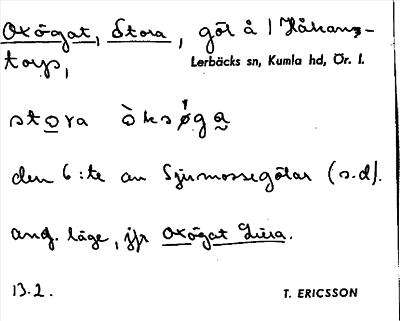 Oxögat, Stora, göl å 1 Håkans-
torp,
Lerbäcks sn, Kumla hd, Ör. l.
stora òksǿga
den 6:te av Sjumossegölar (s.d).
ang. läge, jfr Oxögat Lilla.
13.2.
T. ERICSSON